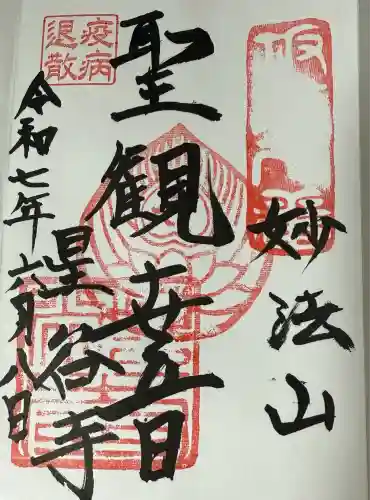 妙法山
聖観世音
星谷寺
令和七年六月八日
疫病
退散